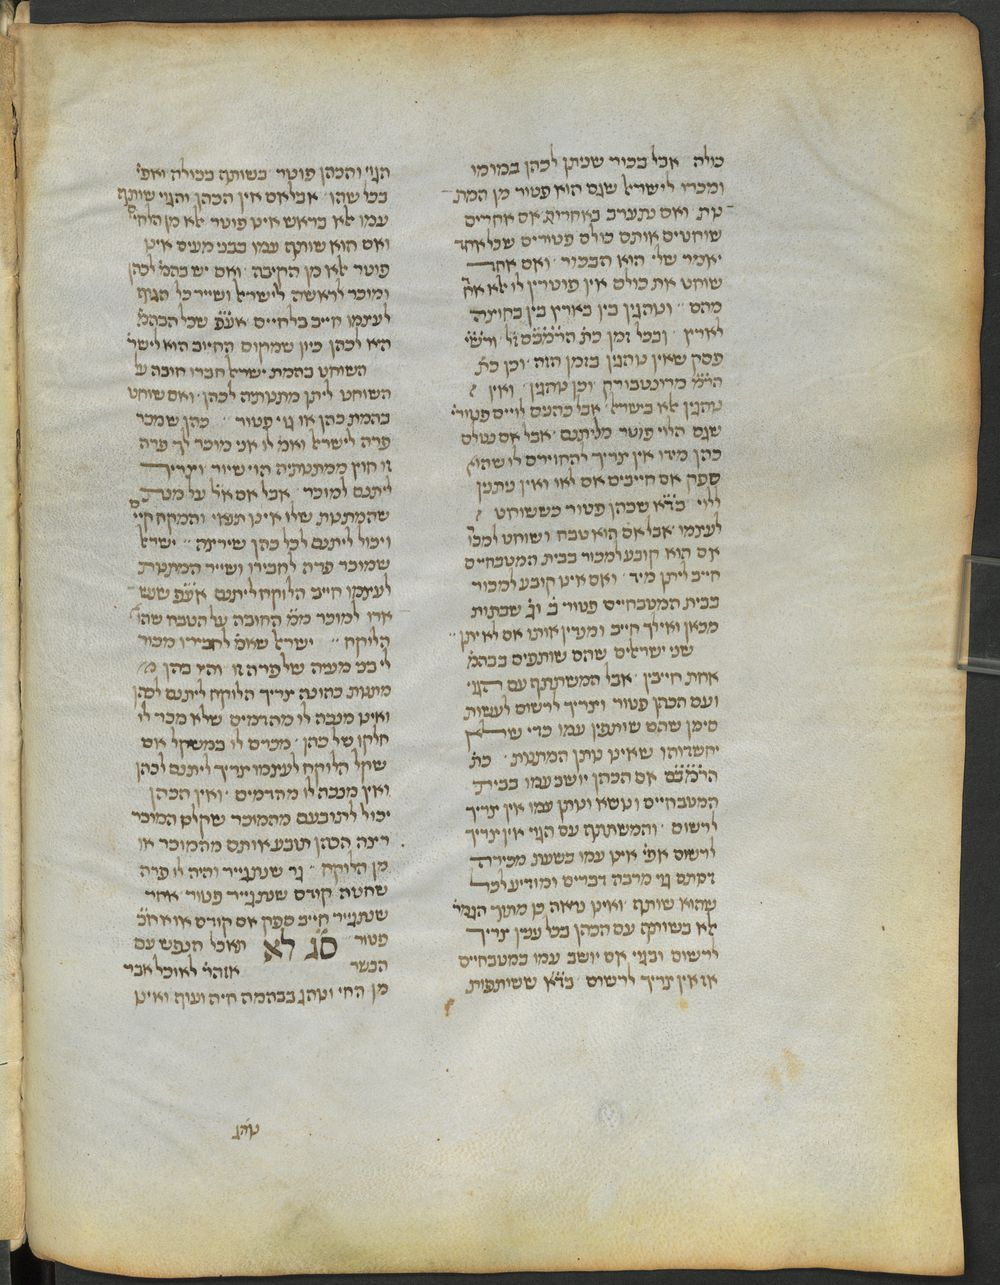 כולה אבל בכור שניתן לכהן במומו
ומכרו לישראל שגם הוא פטור מן המת
נות ואם נתערב באחרים אם אחרים
שוחטים אותם כולם פטורים שכל אחד
יאמר שלי הוא הבכור ואם אחד
שוחט את כולם אין פוטרין לו אלא אח'
מהם ונוהגין בין בארץ בין בחוצה
לארץ ובכל זמן כת' הרמב"ם ז"ל ורש"י
פסק שאין נוהגין בזמן הזה וכן כת'
הר"מ מרוטנבורק וכן נוהגין ואין
נוהגין אלא בישראל אבל כהנים לוים פטורי'
שגם הלוי פטור מליתנם אבל אם נטלם
כהן מידו אין צריך להחזירם לו שהוא
ספק אם חייבים אם לאו ואין נותנין
ללוי בד"א שכהן פטור כששוחט
לעצמו אבל אם הוא טבח ושוחט למכו'
אם הוא קובע למכור בבית המטבחיים
חייב ליתן מיד ואם אינו קובע למכור
בבית המטבחיים פטור ב' וג' שבתות
מכאן ואילך חייב ומנדין אותו אם לא יתן
שני ישראלים שהם שותפים בבהמ'
אחת חייבין אבל המשתתף עם הגוי
ועם הכהן פטור וצריך לרשום לעשות
סימן שהם שותפין עמו כדי שלא
יחשדוהו שאינו נותן המתנות כת'
הרמב"ם אם הכהן יושב עמו בבית
המטבחיים ונושא ונותן עמו אין צריך
לרשום והמשתתף עם הגוי אין צריך
לרשום אפי' אינו עמו בשעת מכירה
דסתם גוי מרבה דברים ומודיע לכל
שהוא שותף ואינו נראה כן מתוך הגמר'
אלא בשותף עם הכהן בכל ענין צריך
לרשום ובגוי אם יושב עמו במטבחיים
אז אין צריך לרשום בד"א ששיתפות
הגוי והכהן פוטר בשותף בכולה ואפי'
בכל שהו אבל אם אין הכהן והגוי שותף
עמו אלא בראש אינו פוטר אלא מן הלחיים
ואם הוא שותף עמו בבני מעים אינו
פוטר אלא מן הקיבה ואם יש בהמ' לכהן
ומוכר לראשה לישראל ושייר כל הגוף
לעצמו חייב בלחיים אע"פ שכל הבהמ'
היא לכהן כיון שמקום החיוב הוא לישר'
השוחט בהמת ישראל חברו חובה על
השוחט ליתן מתנותיה לכהן ואם שוחט
בהמת כהן או גוי פטור כהן שמכר
פרה לישראל ואמ' לו אני מוכר לך פרה
זו חוץ ממתנותיה הוי שיור וצריך
ליתנם למוכר אבל אם א"ל על מנת
שהמתנות שלו אינו תנאי והמקח קיים
ויכול ליתנם לכל כהן שירצה ישראל
שמוכר פרה לחבירו ושייר המתנות
לעצמו חייב הלוקח ליתנם אע"פ שיש
אדו למוכר מ"מ החובה על הטבח שהו'
הלוקח ישראל שאמ' לחבירו מכור
לי בני מעיה של פרה זו והיו בהן
מתנות כהונה צריך הלוקח ליתנם לכהן
ואינו מנכה לו מהדמים שלא מכר לו
חלקו של כהן מכרם לו במשקל אם
שקל הלוקח לעצמו צריך ליתנם לכהן
ואין מנכה לו מהדמים ואין הכהן
יכול לתובעם מהמוכר שקלם המוכר
רצה הכהן תובע אותם מהמוכר או
מן הלוקח גר שנתגייר והיה לו פרה
שחטה קודם שנתגייר פטור אחר
שנתגייר חייב ספק אם קודם או אח"כ
פטור ס"ג לא תאכל הנפש עם
הבשר אזהר' לאוכל אבר
מן החי ונוהג בבהמה חיה ועוף ואינו
נוהג